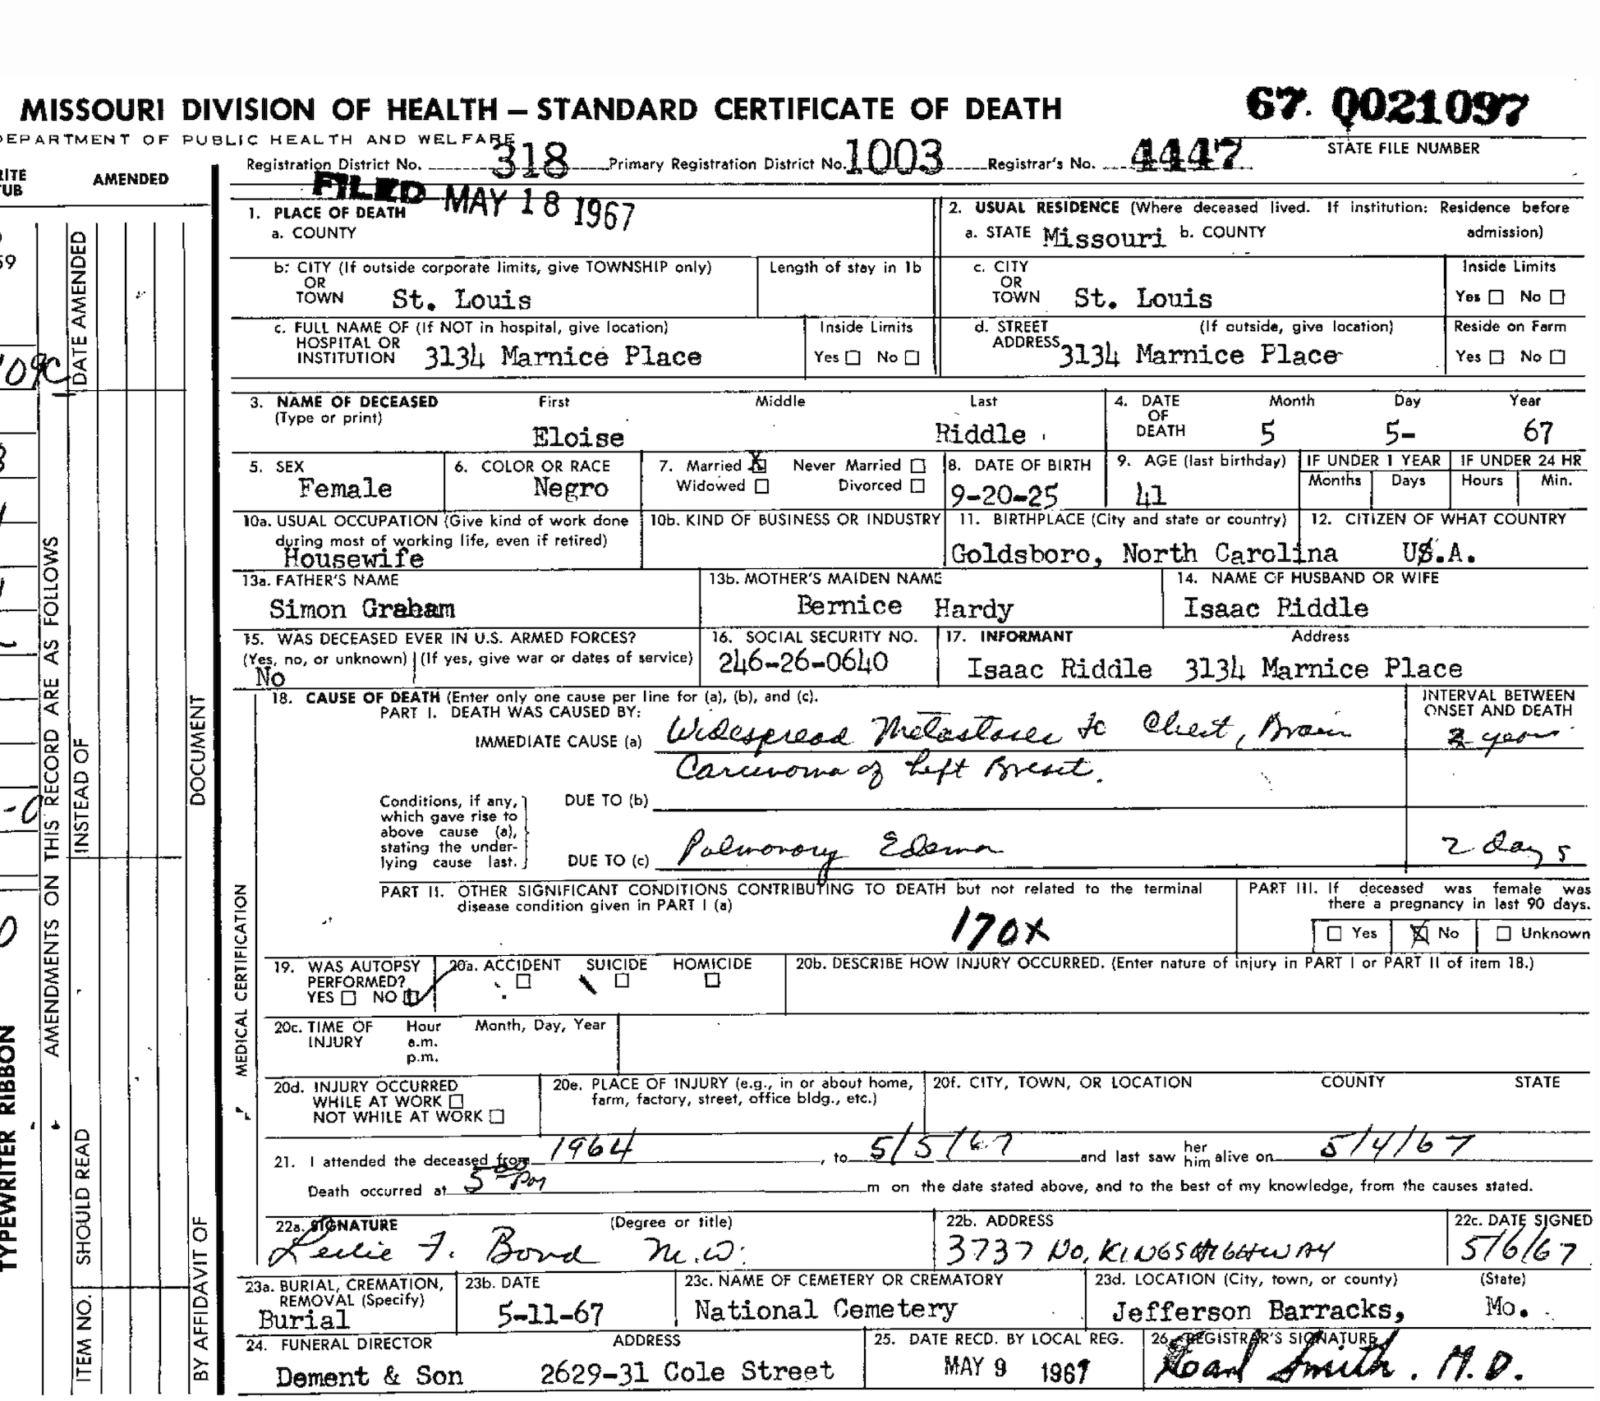 MISSOURI DIVISION OF HEALTH — STANDARD CERTIFICATE OF DEATH
67. 0021097
DEPARTMENT OF PUBLIC HEALTH AND WELFARE
STATE FILE NUMBER
Registration District No. 318 Primary Registration District No. 1003 Registrar's No. 4447
AMENDED
FILED MAY 18 1967
1. PLACE OF DEATH
a. COUNTY
2. USUAL RESIDENCE (Where deceased lived. If institution: Residence before admission)
a. STATE Missouri b. COUNTY
b: CITY (If outside corporate limits, give TOWNSHIP only)
OR
TOWN St. Louis
Length of stay in 1b
c. CITY
OR
TOWN St. Louis
Inside Limits
Yes No
c. FULL NAME OF (If NOT in hospital, give location)
HOSPITAL OR
INSTITUTION 3134 Marnice Place
Inside Limits
Yes No
d. STREET (If outside, give location)
ADDRESS 3134 Marnice Place
Reside on Farm
Yes No
3. NAME OF DECEASED First Middle Last
(Type or print)
Eloise Riddle
4. DATE Month Day Year
OF
DEATH 5 5- 67
5. SEX
Female
6. COLOR OR RACE
Negro
7. Married X Never Married
Widowed Divorced
8. DATE OF BIRTH
9-20-25
9. AGE (last birthday)
41
IF UNDER 1 YEAR
Months Days
IF UNDER 24 HR
Hours Min.
10a. USUAL OCCUPATION (Give kind of work done
during most of working life, even if retired)
Housewife
10b. KIND OF BUSINESS OR INDUSTRY
11. BIRTHPLACE (City and state or country)
Goldsboro, North Carolina
12. CITIZEN OF WHAT COUNTRY
U.S.A.
13a. FATHER'S NAME
Simon Graham
13b. MOTHER'S MAIDEN NAME
Bernice Hardy
14. NAME OF HUSBAND OR WIFE
Isaac Riddle
15. WAS DECEASED EVER IN U.S. ARMED FORCES?
(Yes, no, or unknown) (If yes, give war or dates of service)
No
16. SOCIAL SECURITY NO.
246-26-0640
17. INFORMANT Address
Isaac Riddle 3134 Marnice Place
18. CAUSE OF DEATH (Enter only one cause per line for (a), (b), and (c).
PART I. DEATH WAS CAUSED BY:
INTERVAL BETWEEN
ONSET AND DEATH
IMMEDIATE CAUSE (a) Widespread Metastases to Chest, Brain
years
Carcinoma of Left Breast.
Conditions, if any,
which gave rise to
above cause (a),
stating the under-
lying cause last.
DUE TO (b)
DUE TO (c) Pulmonary Edema 2 days
PART II. OTHER SIGNIFICANT CONDITIONS CONTRIBUTING TO DEATH but not related to the terminal
disease condition given in PART I (a)
170X
PART III. If deceased was female was
there a pregnancy in last 90 days.
Yes X No Unknown
19. WAS AUTOPSY
PERFORMED?
YES NO
20a. ACCIDENT SUICIDE HOMICIDE
20b. DESCRIBE HOW INJURY OCCURRED. (Enter nature of injury in PART I or PART II of item 18.)
20c. TIME OF Hour Month, Day, Year
INJURY a.m.
p.m.
20d. INJURY OCCURRED
WHILE AT WORK
NOT WHILE AT WORK
20e. PLACE OF INJURY (e.g., in or about home,
farm, factory, street, office bldg., etc.)
20f. CITY, TOWN, OR LOCATION COUNTY STATE
21. I attended the deceased from 1964, to 5/5/67 and last saw her him alive on 5/4/67
Death occurred at 5 00 PM m on the date stated above, and to the best of my knowledge, from the causes stated.
22a. SIGNATURE (Degree or title)
Leslie F. Bond M.D.
22b. ADDRESS
3737 No. KINGSHIGHWAY
22c. DATE SIGNED
5/6/67
23a. BURIAL, CREMATION,
REMOVAL (Specify)
Burial
23b. DATE
5-11-67
23c. NAME OF CEMETERY OR CREMATORY
National Cemetery
23d. LOCATION (City, town, or county) (State)
Jefferson Barracks, Mo.
24. FUNERAL DIRECTOR ADDRESS
Dement & Son 2629-31 Cole Street
25. DATE RECD. BY LOCAL REG.
MAY 9 1967
26. REGISTRAR'S SIGNATURE
Smith. M.D.
MEDICAL CERTIFICATION
AMENDMENTS ON THIS RECORD ARE AS FOLLOWS
DATE AMENDED
INSTEAD OF
DOCUMENT
SHOULD READ
ITEM NO.
BY AFFIDAVIT OF
TYPEWRITER RIBBON